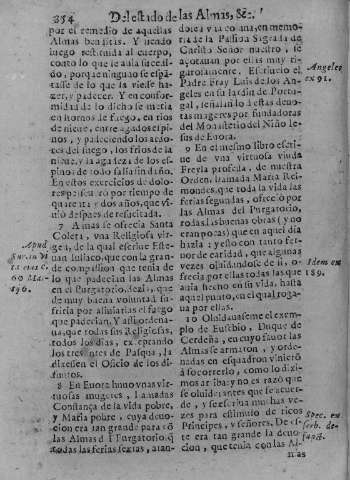 354 Del estado de las Almas, &c.
por el remedio de aquellas
Almas benditas. Y siendo
luego restituida al cuerpo,
conto lo que le auia sucedi-
do, porque ninguno se espã-
tasse de lo que la viesse ha-
zer, y padecer. Y en confor-
midad de lo dicho se metia
en hornos de fuego, en rios
de nieue, entre agudos espi-
nos, y padeciendo los ardo-
res del fuego, los frios de la
nieue, y la agudeza de los es-
pinos de todo salia sin daño.
En estos exercicios de dolo-
res perseueró por tiempo de
quarenta y dos años, que vi-
uio despues de resucitada.
7 A mas se ofrecia Santa
Coleta, vna Religiosa vir-
gen, de la qual escriue Este-
uan Iuliaco, que con la gran-
de compassion que tenia de
lo que padecian las Almas
en el Purgatorio, dezia, que
de muy buena voluntad su-
friria por aliuiarlas el fuego
que padecian. Y assi ordena-
ua, que todas sus Religiosas,
todos los dias, exceptando
los tres antes de Pasqua, la
dixessen el Oficio de los di-
funtos.
8 En Euora huuo vnas vir-
tuosas mugeres, llamadas
Constança de la vida pobre,
y Maria pobre, cuya deuo-
cion era tan grande para cõ
las Almas del Purgatorio, q̃
todas las ferias sextas, atan-
Apud
Sur. in vi
ta eius c.
60 Ma-
496.
dolas a vna coluna, en memo-
ria de la Passion Sagrada de
Christo Señor nuestro, se
açotauan por ellas muy ri-
gurosamente. Escriuelo el
Padre Fray Luis de los An-
geles en su Jardin de Portu-
gal, señalando a estas deuo-
tas mugeres por fundadoras
del Monasterio del Niño Ie-
sus de Euora.
9 En el mesmo libro escri-
ue de vna virtuosa viuda
Freyla professa, de nuestra
Orden, llamada Maria Rei-
mondes, que toda la vida las
ferias segundas, ofrecio por
las Almas del Purgatorio,
todas las buenas obras (y no
eran pocas) que en aquel dia
hazia; y esto con tanto feruor
de caridad, que algunas
vezes oluidandose de si, o-
frecia por ellas todas las que
auia hecho en su vida, hasta
aquel punto, en el qual roga-
ua por ellas.
10 Oluidauaseme el exem-
plo de Eusebio, Duque de
Cerdeña, en cuyo fauor las
Almas se armaron, y orde-
nadas en esquadron vinierõ
à socorrerlo, como lo dixi-
mos arriba; y no es razõ que
se oluide, antes que se acuer-
de, y se escriua muchas ve-
zes para estimulo de ricos
Principes, y señores. De es-
te era tan grande la deuo-
cion, que tenia con las Al-
mas
Angeles
ex 91.
Idem ex
189.